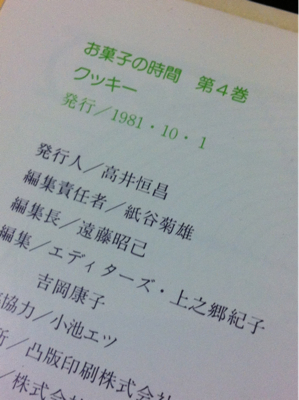 お菓子の時間　第4巻
クッキー
発行／1981・10・1
発行人／高井恒昌
編集責任者／紙谷菊雄
編集長／遠藤昭己
編集／エディターズ・上之郷紀子
吉岡康子
協力／小池エツ
所／凸版印刷株式会
／株式会